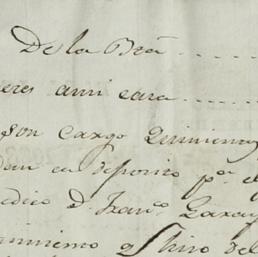 De la Bra
eres ami cara
son cargo quinient
dan en deposito pa. el
edico Dn. Franco. Garay
animiento q hiso del